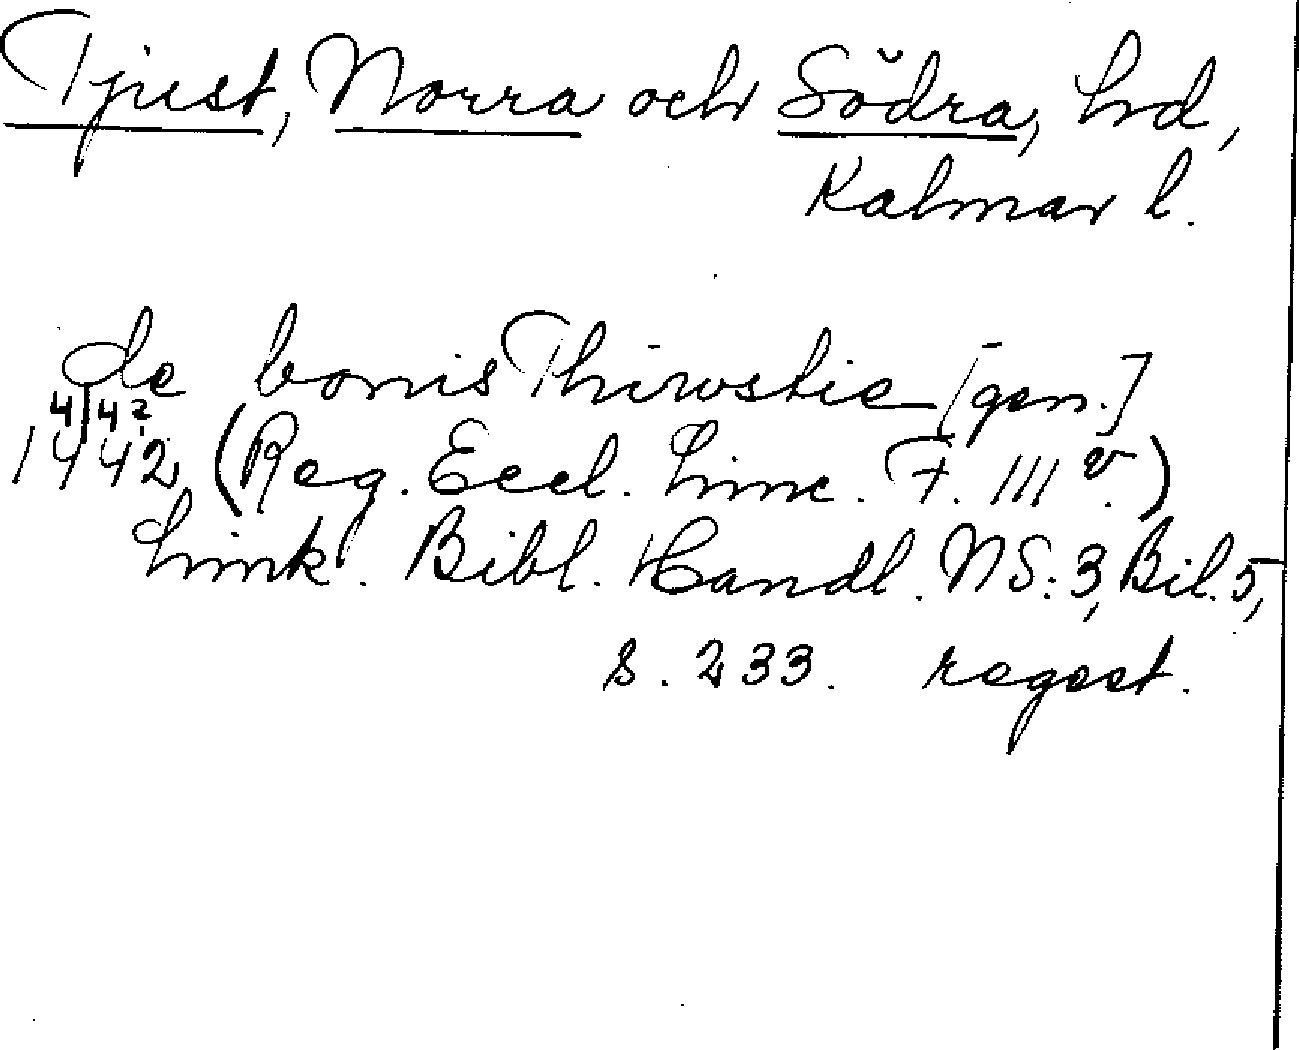 Tjust, Norra och Södra, hd,
Kalmar l.
de bonis Thiwstie [gen.]
4/4 ?
1442 (Reg. Eccl. Linc. F. 111 v.)
Link. Bibl. Handl. NS: 3, Bil. 5,
s. 233. regest.